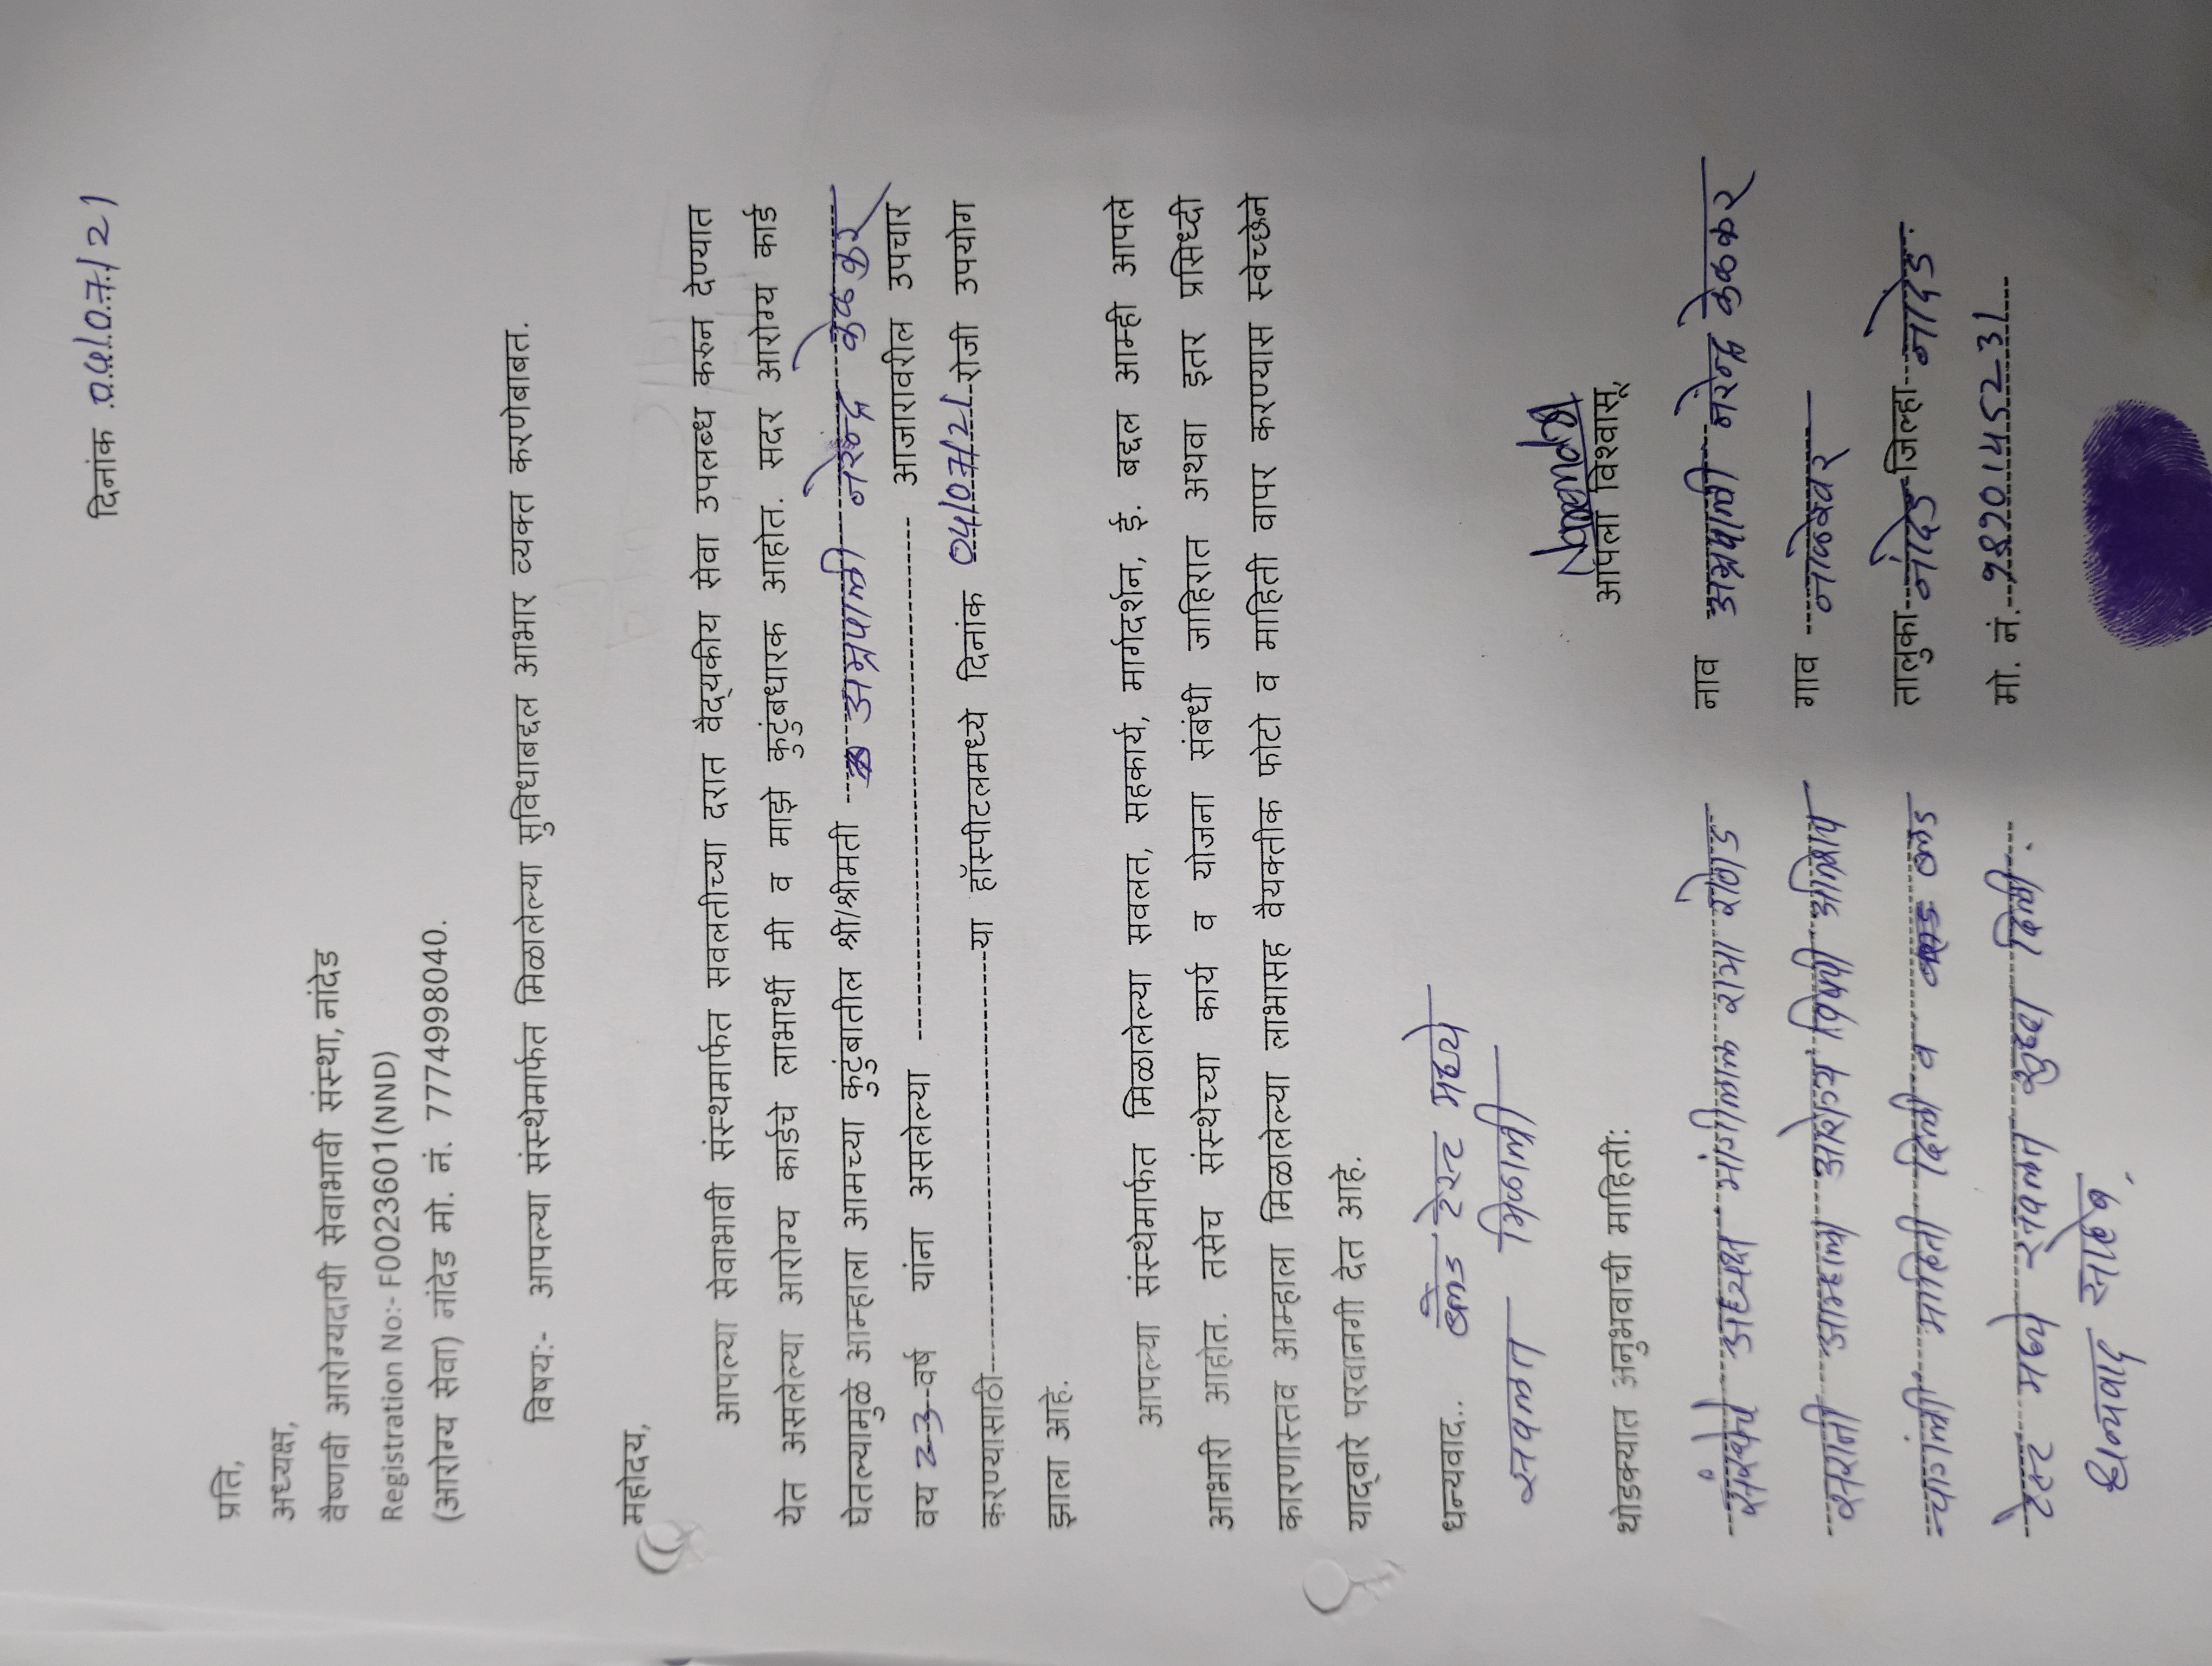 दिनांक 05/07/21
प्रति,
अध्यक्ष,
वैष्णवी आरोग्यदायी सेवाभावी संस्था, नांदेड
Registration No:- F0023601(NND)
(आरोग्य सेवा) नांदेड मो. नं. 7774998040.
विषय:- आपल्या संस्थेमार्फत मिळालेल्या सुविधाबद्दल आभार व्यक्त करणेबाबत.
महोदय,
आपल्या सेवाभावी संस्थमार्फत सवलतीच्या दरात वैद्यकीय सेवा उपलब्ध करुन देण्यात
येत असलेल्या आरोग्य कार्डचे लाभार्थी मी व माझे कुटुंबधारक आहोत. सदर आरोग्य कार्ड
घेतल्यामुळे आम्हाला आमच्या कुटुंबातील श्री/श्रीमती नरेन्द्र
वय 23 वर्ष यांना असलेल्या ---------- आजारावरील उपचार
करण्यासाठी----------या हॉस्पीटलमध्ये दिनांक 05/07/21 रोजी उपयोग
झाला आहे.
आपल्या संस्थेमार्फत मिळालेल्या सवलत, सहकार्य, मार्गदर्शन, ई. बद्दल आम्ही आपले
आभारी आहोत. तसेच संस्थेच्या कार्य व योजना संबंधी जाहिरात अथवा इतर प्रसिध्दी
कारणास्तव आम्हाला मिळालेल्या लाभासह वैयक्तीक फोटो व माहिती वापर करण्यास स्वेच्छेने
याद्वारे परवानगी देत आहे.
धन्यवाद.. टेस्ट मध्ये
सवलत मिळाली
आपला विश्वासू,
थोडक्यात अनुभवाची माहिती:
संस्थेचे अध्यक्ष
नाव नरेन्द्र
आम्हाला आरोग्य विषयी
गाव
माहिती दिली व
तालुका नांदेड जिल्हा नांदेड.
टेस्ट मध्ये सवलत सुद्धा दिली.
मो. नं. 9820145231
धन्यवाद साहेब.